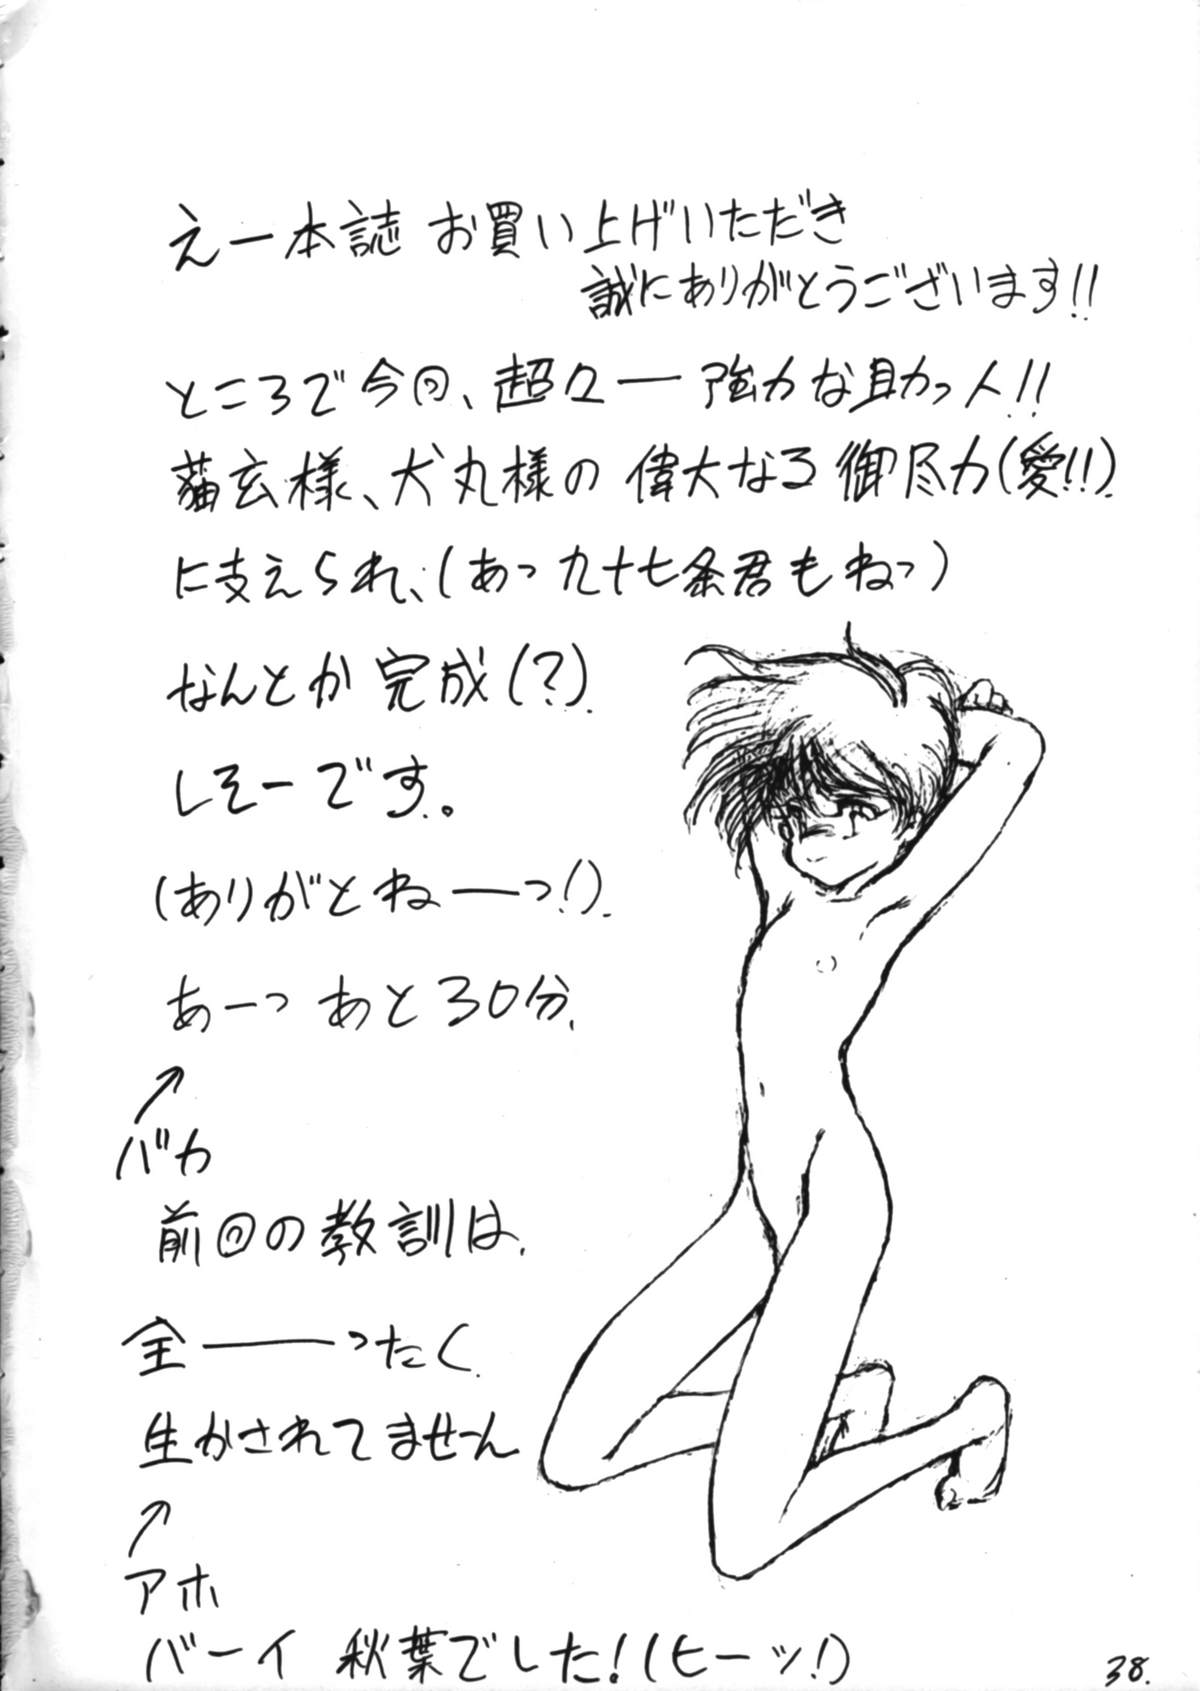 えー本誌 お買い上げいただき
誠にありがとうございます!!
ところで今回、超々ー強力な助っ人!!
猫玄様、犬丸様の 偉大なる 御尽力(愛!!).
に支えられ、(あっ 九十七条君もねっ)
なんとか 完成(?).
しそーです。
(ありがとねーっ!).
あーっ あと30分.
バカ
前回の教訓は.
全ーったく.
生かされてませーん
アホ
バーイ 秋葉でした!(ヒーッ!)
38.